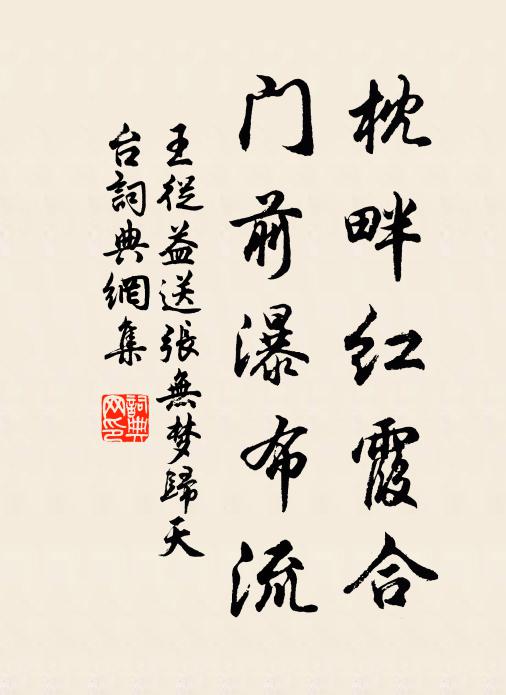 枕畔红霞合
门前瀑布流
王從益送張無梦歸天
台詞典網集
詞典网印